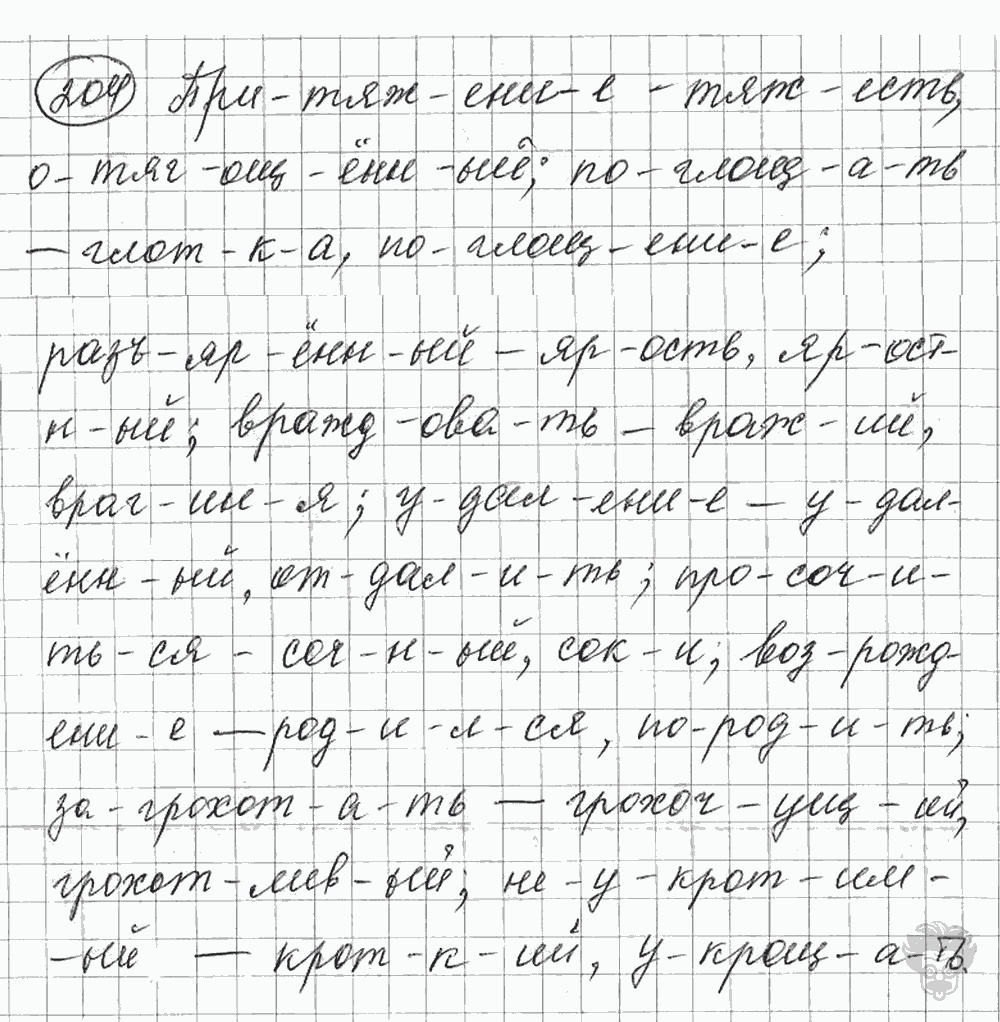 204 При-тяж-ени-е - тяж-есть,
о-тяг-ощ-ённ-ый; по-глощ-а-ть
— глот-к-а, по-глощ-ени-е;
разъ-яр-ённ-ый - яр-ость, яр-ост-
н-ый; вражд-ова-ть - враж-ий,
враг-ин-я; у-дал-ени-е — у-дал-
ённ-ый, от-дал-и-ть; про-соч-и-
ть-ся - соч-н-ый, сок-и; воз-рожд-
ени-е — род-и-л-ся, по-род-и-ть;
за-грохот-а-ть — грохоч-ущ-ий,
грохот-лив-ый; не-у-крот-им-
-ый — крот-к-ий, у-крощ-а-ть.